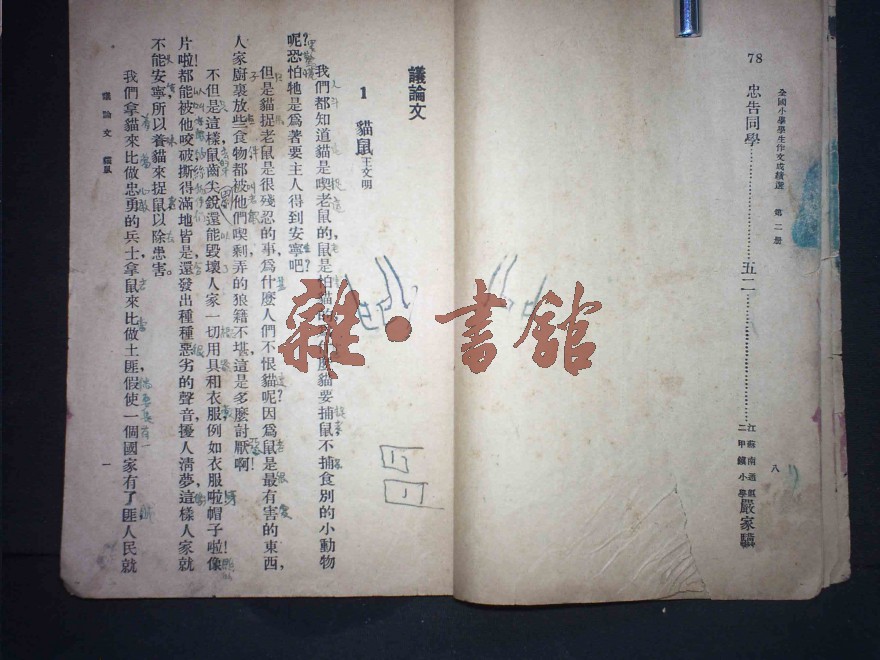 全國小學學生作文成績選 第二册
78 忠告同學……五二……江蘇南通縣二甲鎮小學 嚴家驥
八
議論文
1 貓鼠 王文明
我們都知道貓是喫老鼠的,鼠是怕貓的,麼貓要捕鼠不捕食別的小動物
呢?恐怕牠是爲著要主人得到安寧吧?
但是貓捉老鼠是很殘忍的事,爲什麼人們不恨貓呢?因爲鼠是最有害的東西,
人家廚裏放些食物都被他們喫剩弄的狼籍不堪這是多麼討厭啊!
不但是這樣,鼠齒尖銳還能毀壞人家一切用具和衣服,例如衣服啦!帽子啦!像
片啦!都能被他咬破撕得滿地皆是還發出種種惡劣的聲音擾人淸夢,這樣人家就
不能安寧,所以養貓來捉鼠以除患害。
我們拿貓來比做忠勇的兵士,拿鼠來比做土匪,假使一個國家有了匪,人民就
議論文 貓鼠
一
雜·書館